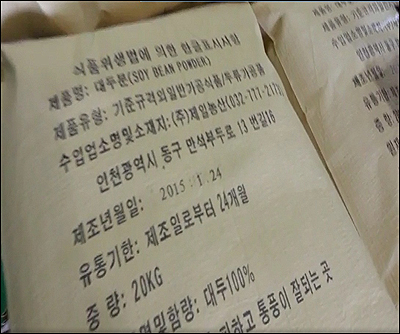 식품위생법에 의한 한글표시사항
제품명: 대두분(SOY BEAN POWDER)
제품유형: 기준규격외일반가공식품/두류가공품
수입업소명및소재지:(주)제일농산(032-777-217
인천광역시 동구 만석부두로 13 번길16
제조년월일: 2015 1 24
유통기한: 제조일로부터 24개월
중 량: 20KG
명및함량: 대두100%
하고 통풍이 잘되는 곳
제품명:
제품유형:
수입업소명
인천
제조년월
유통기한
중 량